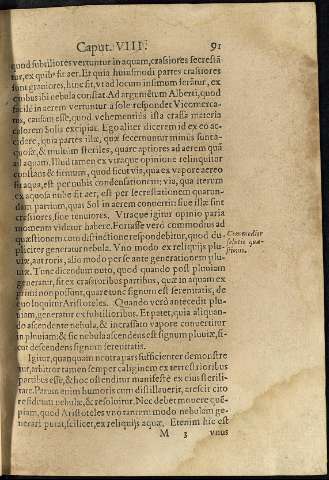 Caput. VIII. 91
quod subtiliores vertuntur in aquam, crassiores secretã
tur, ex quib⁹ fit aer. Et quia huiusmodi partes crassiores
sunt grauiores, hinc fit, vt ad locum insimum ferãtur, ex
quibus
nebula constat. Ad argumẽtum Alberti, quod
facilè in aerem vertuntur a sole respondet Vicomerca-
tus, eandem esse, quod vehementiùs ista crassa materia
calorem Solis excipiat. Ego aliter dicerem id ex eo ac-
cidere, quia partes illæ, quæ secernuntur minus sunt a-
quosæ, & multum steriles, quare aptiores ad aerem quã
ad aquam. Illud tamen ex vtraque opinione relinquitur
constans & firmum, quod sicut via, qua ex vapore aereo
fit aqua, est per nubis condensationem: via, qua iterum
ex aquosa nube fit aer, est per secretionem quarun-
dam partium, quas Sol in aerem conuertit: siue illæ sint
crassiores, siue tenuiores. Vtraque igitur opinio paria
momenta videtur habere. Fortasse verò commodus ad
quæstionem cum distinctione respondebitur, quod du-
pliciter generatur nebula. Vno modo ex reliquijs plu-
uiæ, aut roris, alio modo per se ante generationem plu-
uiæ. Tunc dicendum puto, quod quando post pluuiam
generatur, fit ex crassioribus partibus, quæ in aquam ex
primi non possunt, quare tunc signum est serenitatis, de
quo loquitur Aristoteles. Quando verò antecedit plu-
uiam, generatur ex subtilioribus. Et patet, quia aliquan-
do ascendente nebula, & incrassato vapore conuertitur
in pluuiam: & sic nebula ascendens est signum pluuiæ, si-
cut descendens signum serenitatis.
Igitur, quanquam neutra pars sufficienter demonstre
tur, arbitror tamen semper caliginem ex terrestrioribus
partibus esse, & hoc ostenditur manifestè ex eius sterili-
tate. Parum enim humoris cum distillauerit, arescit cito
residuum nebulæ, & resoluitur. Nec debet mouere que-
piam, quod Aristoteles vno tantum modo nebulam ge-
nerari putat, scilicet, ex reliquijs aquæ. Etenim hic est
M 3 vnus
Commodior
solutio quæ-
stionis.